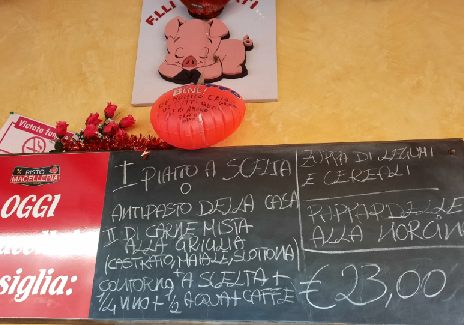 F.LLI
BUNI
Vietato fumare
RISTO
MACELLERIA
OGGI
siglia:
I PIATTO A SCELTA
O
ANTIPASTO DELLA CASA
II DI CARNE MISTA
ALLA GRIGLIA
(CASTRATO, MAIALE, SLOTTONA)
+
CONTORNO A SCELTA +
1/4 VINO + 1/2 ACQUA + CAFFÈ
ZUPPA DI LEGUMI
E CEREALI
PAPPARDELLE
ALLA NORCINA
€ 23,00